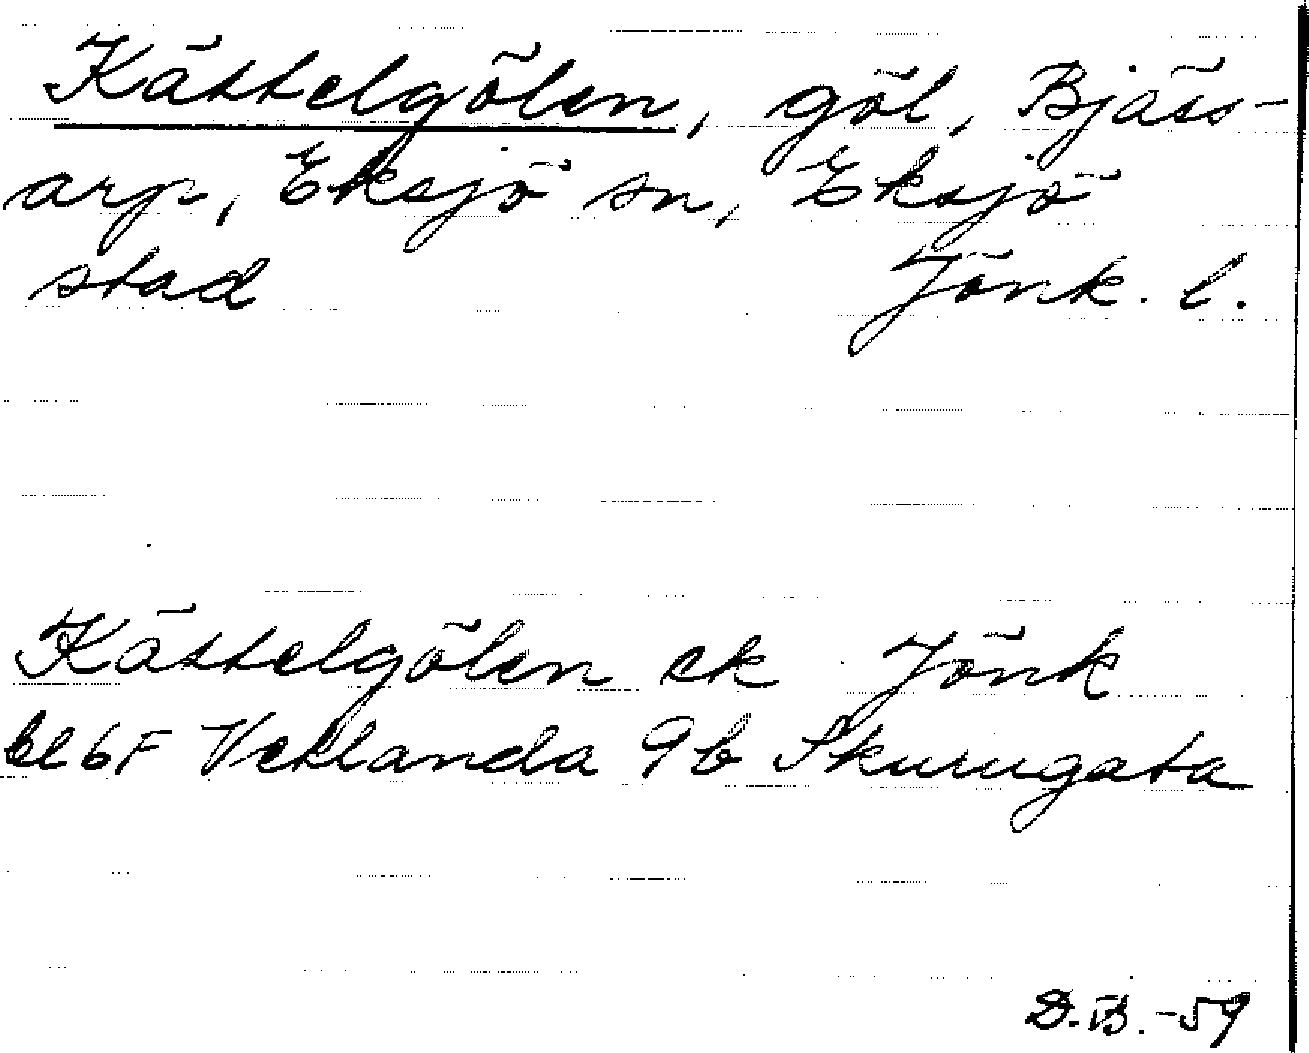 Kättelgölen, göl, Bjäss-
arp, Eksjö sn, Eksjö
stad Jönk. l.
Kättelgölen ek Jönk
bl 6F Vetlanda 9b Skurugata
D.B. -59